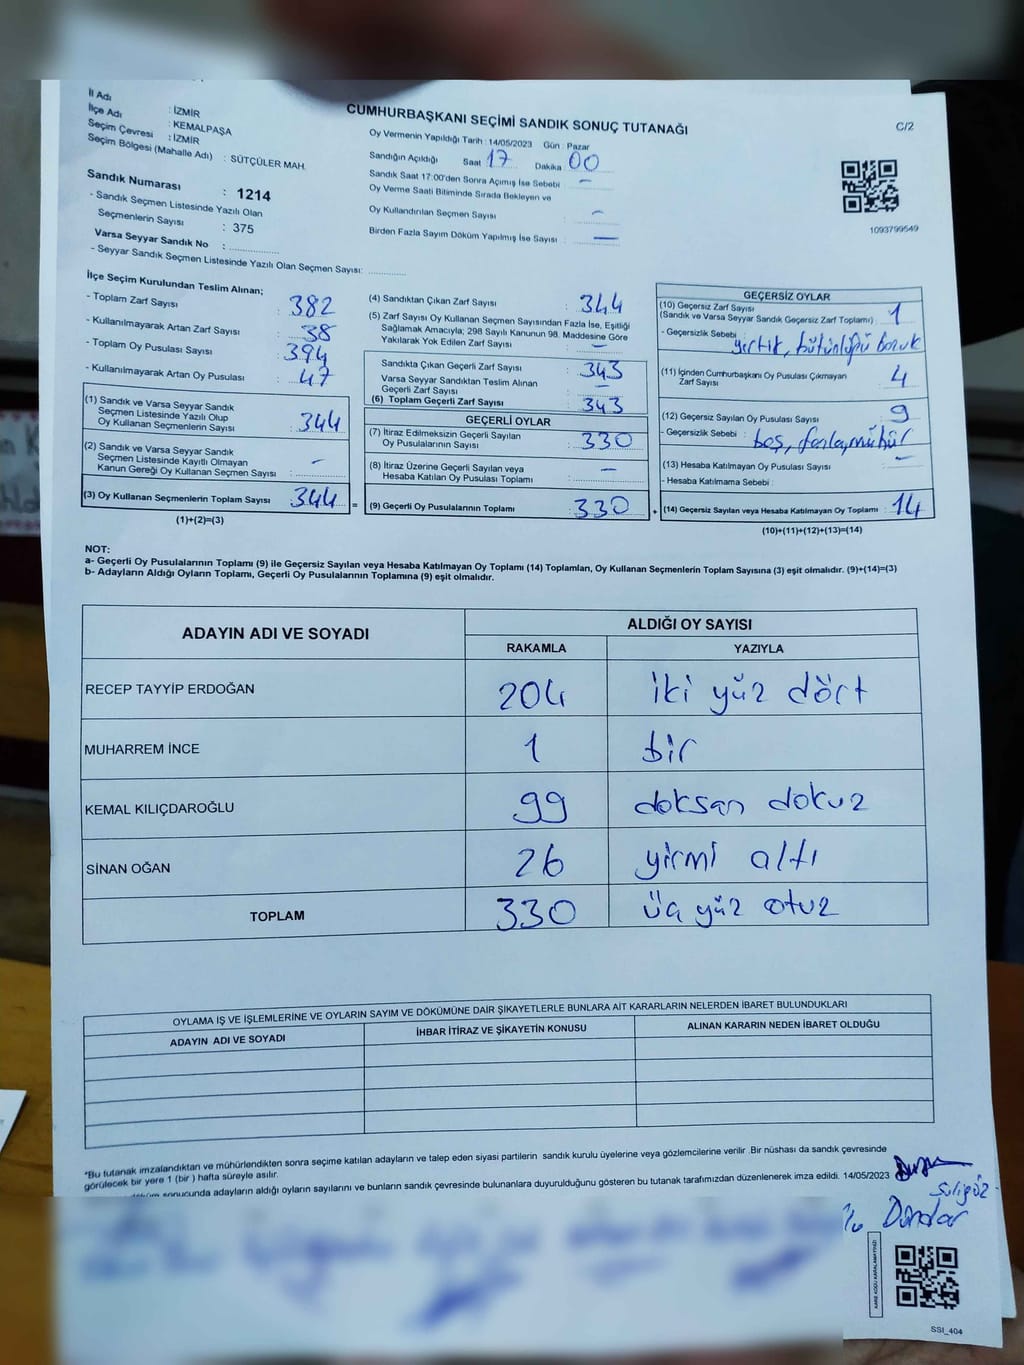 İl Adı : İZMİR
İlçe Adı : KEMALPAŞA
Seçim Çevresi : İZMİR
Seçim Bölgesi (Mahalle Adı) : SÜTÇÜLER MAH.
Sandık Numarası : 1214
- Sandık Seçmen Listesinde Yazılı Olan
Seçmenlerin Sayısı : 375
Varsa Seyyar Sandık No :
- Seyyar Sandık Seçmen Listesinde Yazılı Olan Seçmen Sayısı:
CUMHURBAŞKANI SEÇİMİ SANDIK SONUÇ TUTANAĞI
C/2
Oy Vermenin Yapıldığı Tarih : 14/05/2023 Gün : Pazar
Sandığın Açıldığı Saat 17 Dakika 00
Sandık Saat 17:00'den Sonra Açımış İse Sebebi : –
Oy Verme Saati Bitiminde Sırada Bekleyen ve
Oy Kullandırılan Seçmen Sayısı : –
Birden Fazla Sayım Döküm Yapılmış İse Sayısı : –
1093799549
İlçe Seçim Kurulundan Teslim Alınan;
- Toplam Zarf Sayısı : 382
- Kullanılmayarak Artan Zarf Sayısı : 38
- Toplam Oy Pusulası Sayısı : 394
- Kullanılmayarak Artan Oy Pusulası : 47
(1) Sandık ve Varsa Seyyar Sandık
Seçmen Listesinde Yazılı Olup
Oy Kullanan Seçmenlerin Sayısı : 344
(2) Sandık ve Varsa Seyyar Sandık
Seçmen Listesinde Kayıtlı Olmayan
Kanun Gereği Oy Kullanan Seçmen Sayısı : –
(3) Oy Kullanan Seçmenlerin Toplam Sayısı : 344 =
(1)+(2)=(3)
(4) Sandıktan Çıkan Zarf Sayısı : 344
(5) Zarf Sayısı Oy Kullanan Seçmen Sayısından Fazla İse, Eşitliği
Sağlamak Amacıyla; 298 Sayılı Kanunun 98. Maddesine Göre
Yakılarak Yok Edilen Zarf Sayısı : –
Sandıkta Çıkan Geçerli Zarf Sayısı : 343
Varsa Seyyar Sandıktan Teslim Alınan
Geçerli Zarf Sayısı : –
(6) Toplam Geçerli Zarf Sayısı : 343
GEÇERLİ OYLAR
(7) İtiraz Edilmeksizin Geçerli Sayılan
Oy Pusulalarının Sayısı : 330
(8) İtiraz Üzerine Geçerli Sayılan veya
Hesaba Katılan Oy Pusulası Toplamı : –
(9) Geçerli Oy Pusulalarının Toplamı : 330 +
GEÇERSİZ OYLAR
(10) Geçersiz Zarf Sayısı
(Sandık ve Varsa Seyyar Sandık Geçersiz Zarf Toplamı) : 1
- Geçersizlik Sebebi : yırtık, bütünlüğü bozuk
(11) İçinden Cumhurbaşkanı Oy Pusulası Çıkmayan
Zarf Sayısı : 4
(12) Geçersiz Sayılan Oy Pusulası Sayısı : 9
- Geçersizlik Sebebi : boş, fazla mühür
(13) Hesaba Katılmayan Oy Pusulası Sayısı : –
- Hesaba Katılmama Sebebi :
(14) Geçersiz Sayılan veya Hesaba Katılmayan Oy Toplamı : 14
(10)+(11)+(12)+(13)=(14)
NOT:
a- Geçerli Oy Pusulalarının Toplamı (9) ile Geçersiz Sayılan veya Hesaba Katılmayan Oy Toplamı (14) Toplamları, Oy Kullanan Seçmenlerin Toplam Sayısına (3) eşit olmalıdır. (9)+(14)=(3)
b- Adayların Aldığı Oyların Toplamı, Geçerli Oy Pusulalarının Toplamına (9) eşit olmalıdır.
ADAYIN ADI VE SOYADI ALDIĞI OY SAYISI
RAKAMLA YAZIYLA
RECEP TAYYİP ERDOĞAN 204 iki yüz dört
MUHARREM İNCE 1 bir
KEMAL KILIÇDAROĞLU 99 doksan dokuz
SİNAN OĞAN 26 yirmi altı
TOPLAM 330 üç yüz otuz
OYLAMA İŞ VE İŞLEMLERİNE VE OYLARIN SAYIM VE DÖKÜMÜNE DAİR ŞİKAYETLERLE BUNLARA AİT KARARLARIN NELERDEN İBARET BULUNDUKLARI
ADAYIN ADI VE SOYADI İHBAR İTİRAZ VE ŞİKAYETİN KONUSU ALINAN KARARIN NEDEN İBARET OLDUĞU
*Bu tutanak imzalandıktan ve mühürlendikten sonra seçime katılan adayların ve talep eden siyasi partilerin sandık kurulu üyelerine veya gözlemcilerine verilir .Bir nüshası da sandık çevresinde
görülecek bir yere 1 (bir ) hafta süreyle asılır.
sonucunda adayların aldığı oyların sayılarını ve bunların sandık çevresinde bulunanlara duyurulduğunu gösteren bu tutanak tarafımızdan düzenlenerek imza edildi. 14/05/2023
Dündar
KARE KODU KARALAMAYINIZ!
SSI_404